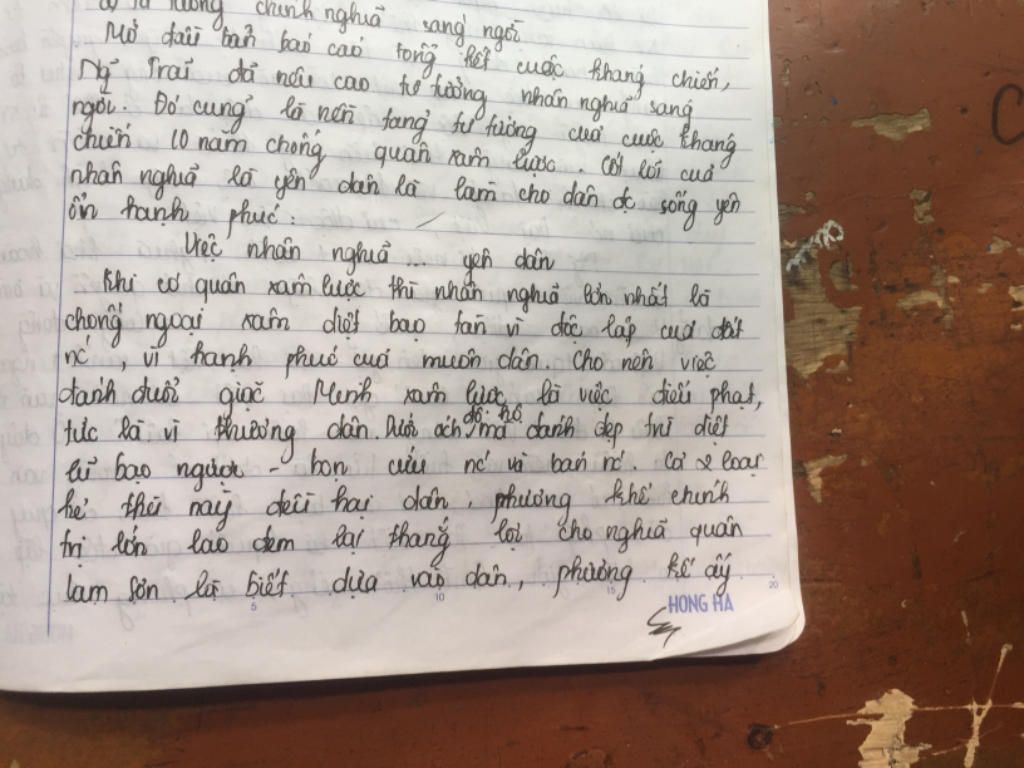 tư tưởng chính nghĩa sáng ngời
Mở đầu bản báo cáo tổng kết cuộc kháng chiến,
Ng~ Trãi đã nêu cao tư tưởng nhân nghĩa sáng
ngời. Đó cũng là nền tảng tư tưởng của cuộc kháng
chiến 10 năm chống quân xâm lược. Cốt lõi của
nhân nghĩa là yên dân là làm cho dân đc sống yên
ổn hạnh phúc:
Việc nhân nghĩa ... yên dân
Khi có quân xâm lược thì nhân nghĩa lớn nhất là
chống ngoại xâm diệt bạo tàn vì độc lập của đất
nc', vì hạnh phúc của muôn dân. Cho nên việc
đánh đuổi giặc Minh xâm lược là việc điếu phạt,
tức là vì thương dân. Dưới ách đô hộ mà đánh dẹp trừ diệt
lũ bạo ngược - bọn cứu nc' và bán nc'. Cả 2 loại
kẻ thù này đều hại dân, phương kế chính
trị lớn lao đem lại thắng lợi cho nghĩa quân
Lam Sơn là biết dựa vào dân, phương kế ấy
5 10 15 20
HONG HA
C